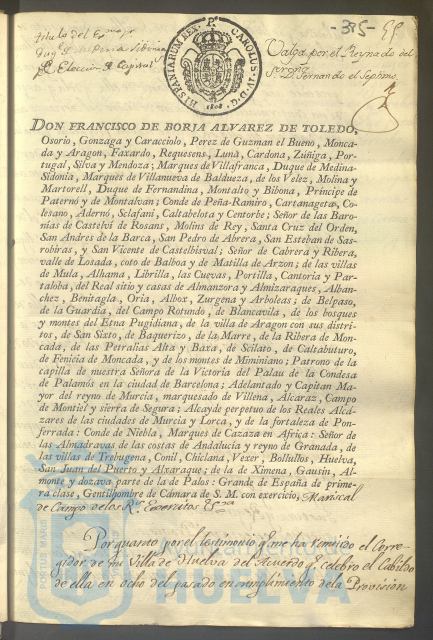 -315-
Titulo del
Valga por el Reynado del
Sr. D. Fernando el Septimo.
HISPANIARUM REX. P.
CAROLUS. IV. D. G.
1808.
DON FRANCISCO DE BORJA ALVAREZ DE TOLEDO,
Osorio, Gonzaga y Caracciolo, Perez de Guzman el Bueno, Monca-
da y Aragon, Faxardo, Requesens, Luna, Cardona, Zúñiga, Por-
tugal, Silva y Mendoza; Marques de Villafranca, Duque de Medina-
Sidonia, Marques de Villanueva de Baldueza, de los Velez, Molina y
Martorell, Duque de Fernandina, Montalto y Bibona, Príncipe de
Paternó y de Montalvan; Conde de Peña-Ramiro, Cartanageta, Co-
lesano, Adernó, Sclafani, Caltabelota y Centorbe; Señor de las Baro-
nías de Castelví de Rosans, Molins de Rey, Santa Cruz del Orden,
San Andres de la Barca, San Pedro de Abrera, San Esteban de Sas-
robiras, y San Vicente de Castelbisval; Señor de Cabrera y Ribera,
valle de Losada, coto de Balboa y de Matilla de Arzon; de las villas
de Mula, Alhama, Librilla, las Cuevas, Portilla, Cantoria y Par-
taloba, del Real sitio y casas de Almanzora y Almizaraques, Alban-
chez, Benitagla, Oria, Albox, Zurgena y Arboleas; de Belpaso,
de la Guardia, del Campo Rotundo, de Blancavila, de los bosques
y montes del Etna Pugidiana, de la villa de Aragon con sus distri-
tos, de San Sixto, de Baquerizo, de la Marre, de la Ribera de Mon-
cada, de las Petralias Alta y Baxa, de Scilato, de Calsabuturo,
de Fenicia de Moncada, y de los montes de Miminiano; Patrono de la
capilla de nuestra Señora de la Victoria del Palau de la Condesa
de Palamós en la ciudad de Barcelona; Adelantado y Capitan Ma-
yor del reyno de Murcia, marquesado de Villena, Alcaraz, Campo
de Montiel y sierra de Segura; Alcayde perpetuo de los Reales Alcá-
zares de las ciudades de Murcia y Lorca, y de la fortaleza de Pon-
ferrada: Conde de Niebla, Marques de Cazaza en Africa: Señor de
las Almadravas de las costas de Andalucía y reyno de Granada, de
las villas de Trebugena, Conil, Chiclana, Vexer, Bollullos, Huelva,
San Juan del Puerto y Alxaraque; de la de Ximena, Gausin, Al-
monte y dozava parte de la de Palos: Grande de España de prime-
ra clase, Gentilhombre de Cámara de S. M. con exercicio, Mariscal
de Campo de los Rs. Exercitos &ca
Por quanto por el testimonio que me ha remitido el Corre-
gidor de mi Villa de Huelva del Acuerdo q. celebró el Cabildo
de ella en ocho del pasado en cumplimiento de la Provision
PORTUS MARIS
Ayuntamiento de
HUELVA